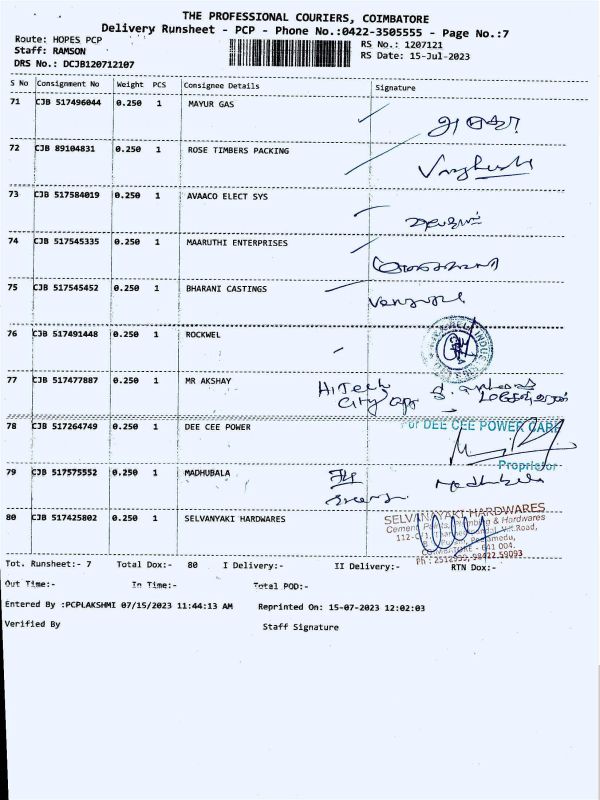 THE PROFESSIONAL COURIERS, COIMBATORE
Delivery Runsheet - PCP - Phone No.:0422-3505555 - Page No.:7
Route: HOPES PCP
RS No.: 1207121
Staff: RAMSON
RS Date: 15-Jul-2023
DRS No.: DCJB120712107
S No Consignment No Weight PCS Consignee Details Signature
71 CJB 517496044 0.250 1 MAYUR GAS
72 CJB 89104831 0.250 1 ROSE TIMBERS PACKING
73 CJB 517584019 0.250 1 AVAACO ELECT SYS
74 CJB 517545335 0.250 1 MAARUTHI ENTERPRISES
75 CJB 517545452 0.250 1 BHARANI CASTINGS
76 CJB 517491448 0.250 1 ROCKWEL
77 CJB 517477887 0.250 1 MR AKSHAY HiTech
City
78 CJB 517264749 0.250 1 DEE CEE POWER
For DEE CEE POWER CARE
Proprietor
79 CJB 517575552 0.250 1 MADHUBALA Madhubala
80 CJB 517425802 0.250 1 SELVANYAKI HARDWARES
SELVANAYAKI HARDWARES
Cement Paints, Plumbing & Hardwares
COIMBATORE - 641 004.
Ph : 2512959, 98422 59093
Tot. Runsheet:- 7 Total Dox:- 80 I Delivery:- II Delivery:- RTN Dox:-
Out Time:- In Time:- Total POD:-
Entered By :PCPLAKSHMI 07/15/2023 11:44:13 AM Reprinted On: 15-07-2023 12:02:03
Verified By Staff Signature